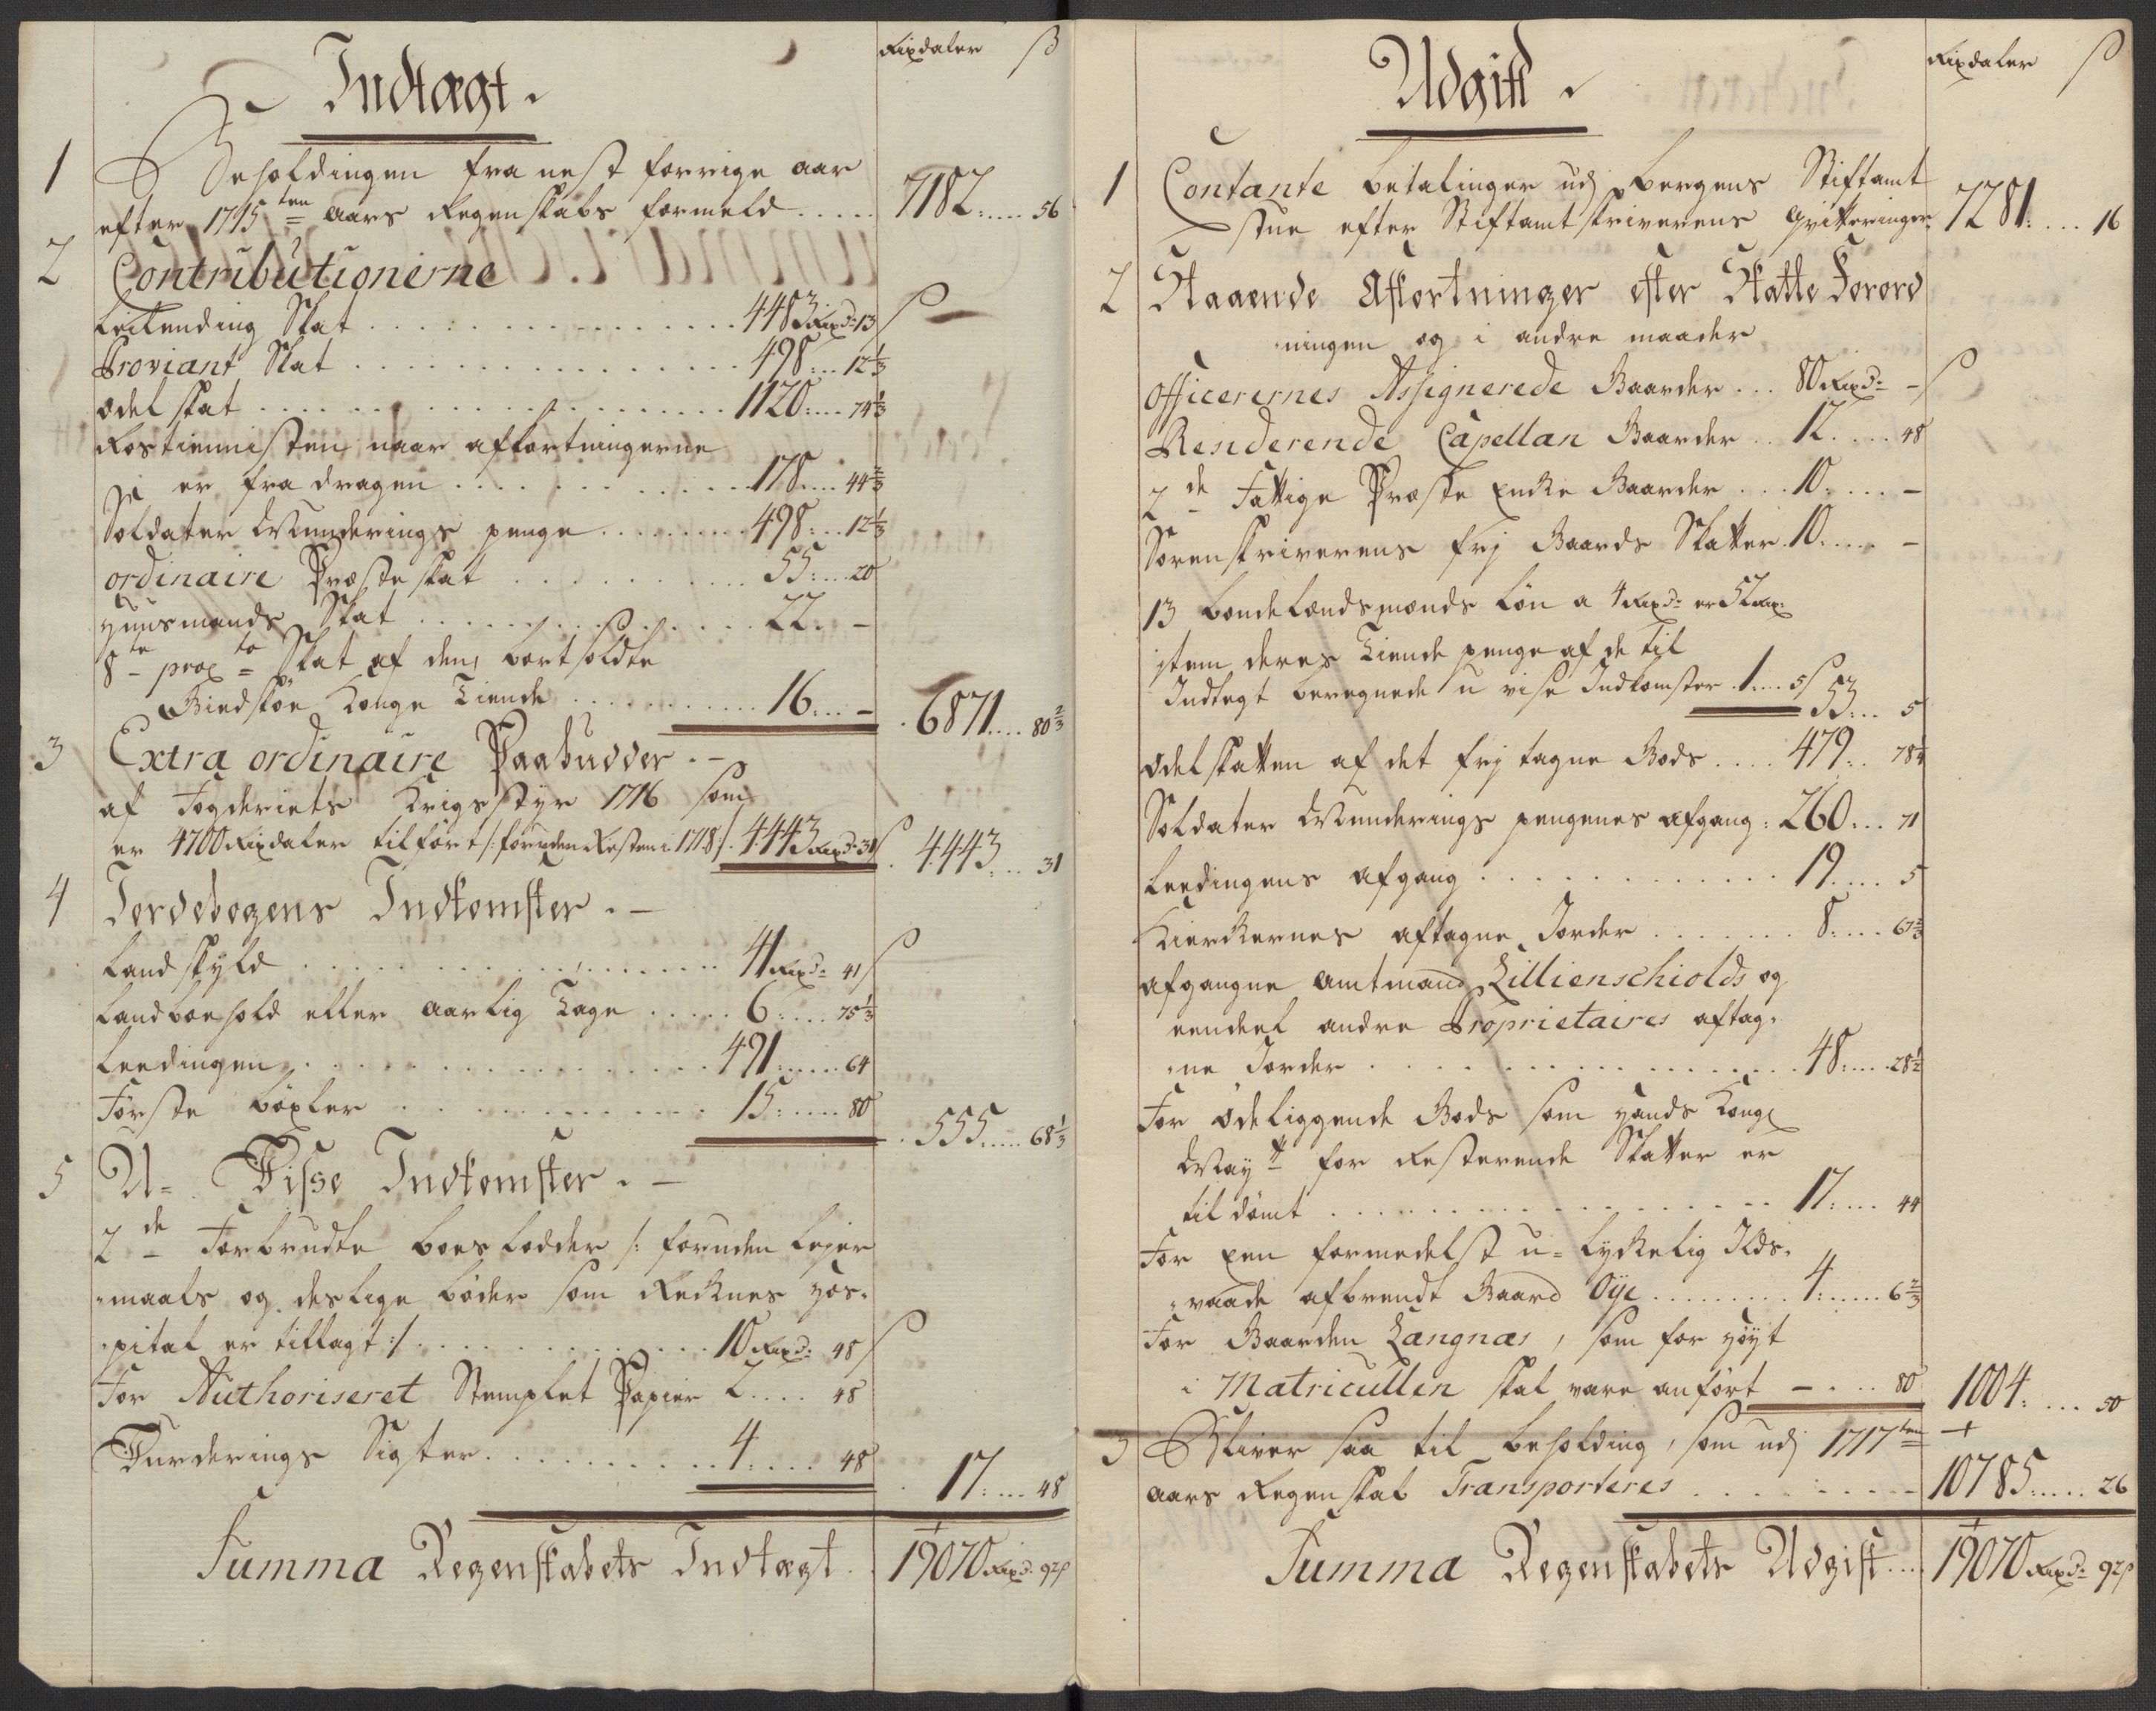 Indtægt.
Rixdaler ß
1 Beholdingen fra nest forrige aar
efter 1715ten aars Regenskabs formeld ..... 7182:.... 56
2 Contributionerne
Leilending Skat ........ 4483 Rixdr: 13 ß
Proviant Skat ........ 498:... 12 1/3
odel skat ........ 1120:.... 74 1/3
Rostiennisten naar afkortningerne
er fra dragen ........ 178:.... 44 2/3
Soldater Munderings penge ........ 498:... 12 1/3
ordinaire Præste skat ........ 55:.... 20
Huusmands Skat ........ 22. –
8te prosto Skat af den bortsoldte
Konge Tiende ........ 16... – 6871.... 80 2/3
3 Extra ordinaire Paabudder. –
af Fogderiets Krigsstyr 1716 som
er 4700 Rixdaler tilført /: foruden Resten i 1718 :/ 4443 Rixdr 31 ß 4443... 31
4 Jordebogens Indkomster. –
Landskyld ........ 41 Rixdr: 41 ß
Landboehold eller aarlig Tage ..... 6:.... 75 1/3
Leedingen ........ 491:..... 64
Første böxler ........ 15:..... 80 555..... 68 1/3
5 U= Visse Indkomster. –
2de Forbrudte boes lodder /: foruden lejer
maals og deslige böder som Recknes Hos=
pital er tillagt :/ ........ 10 Rixdr: 48 ß
For Authoriseret Stemplet Papiir 2.... 48
Vurderings Sigter ........ 4:.... 48 17:.... 48
Summa Regenskabets Indtægt. 19070 Rixdr. 92 ß
Udgift.
Rixdaler ß
1 Contante betalinger udj Bergens Stiftamt
stue efter Stiftamtskriverens Qvitteringer. 7281:... 16
2 Staaende Afkortninger efter Skatte Forord
ningen og i andre maader
Officerernes Assignerede Gaarder ... 80 Rixdr: – ß
Residerende Capellan Gaarder .. 12.... 48
2de Fattige Præste Encke Gaarder ... 10.... –
Sorenskriverens frj Gaards Skatter. 10.... –
13 bondelændsmænds løn a 4 Rixdr er 52 Rixr
item deres Tiende penge af de til
Indtegt beregnede u visse Indkomster. 1.... 5 ß 53:... 5
Odelskatten af det frj tagne Gods .... 479:.. 78 1/2
Soldater Munderings pengenes afgang: 260... 71
Leedingens afgang ........ 19.... 5
Kierckernes aftagne Jorder ........ 8.... 67 2/3
afgangne amtmand Lillienschiolds og
eendeel andre Proprietaires aftag=
ne Jorder ........ 48:.... 28 1/2
For ödeliggende Gods som Hands Kongl
Maytt for Resterende Skatter er
til dömt ........ 17:.... 44
For een formedelst u=lyckelig Ilds=
vaade afbrendt Gaard Oÿe ........ 4:..... 6 2/3
For Gaarden Langnæs, som for Höyt
i Matricullen skal være anført –... 80 1004:.... 50
3 Bliver saa til beholding, som udj 1717ten
aars Regenskab Transporteres ........ 10785:.... 26
Summa Regenskabets Udgift... 19070 Rixdr: 92 ß